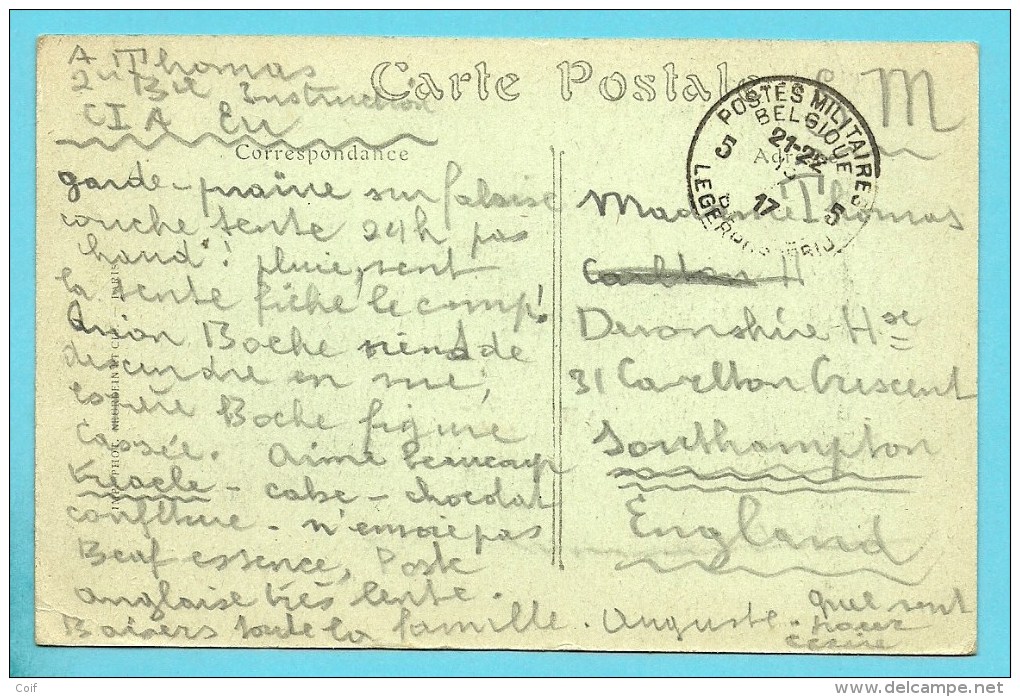 A Thomas
2e Bie Instruction
CIA Eu
Carte Postale
S. M
Correspondance
POSTES MILITAIRES
BELGIQUE
21-22
17
5 5
LEGERPOSTERIJ
garde - prairie sur falaise
couche tente 24h pas
chaud! pluie, vent
la tente fiche le camp!
Avion Boche vient de
descendre en mer,
espère Boche figure
cassée. Aime beaucoup
treacle - cake - chocolat
confiture - n'envoie pas
Beaf essence, Poste
anglaise très lente.
Baisers toute la famille. Auguste.
quel vent
pour
écrire
Madame Thomas
Carlton H
Devonshire Hse
31 Carlton Crescent
Southampton
England
PHOT. NEURDEIN ET CIE PARIS
Coif
www.delcampe.net